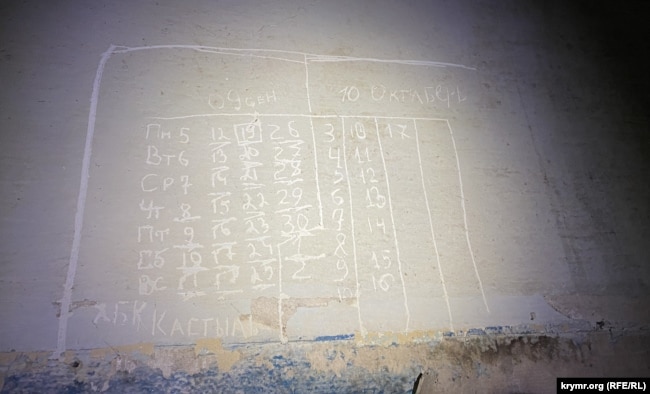 09 сен 10 Октябрь
Пн 5 12 19 26 3 10 17
Вт 6 13 20 27 4 11
Ср 7 14 21 28 5 12
Чт 8 15 22 29 6 13
Пт 9 16 23 30 7 14
Сб 10 17 24 1 8 15
Вс 11 18 25 2 9 16
КАСТЫЛЬ
krymr.org (RFE/RL)